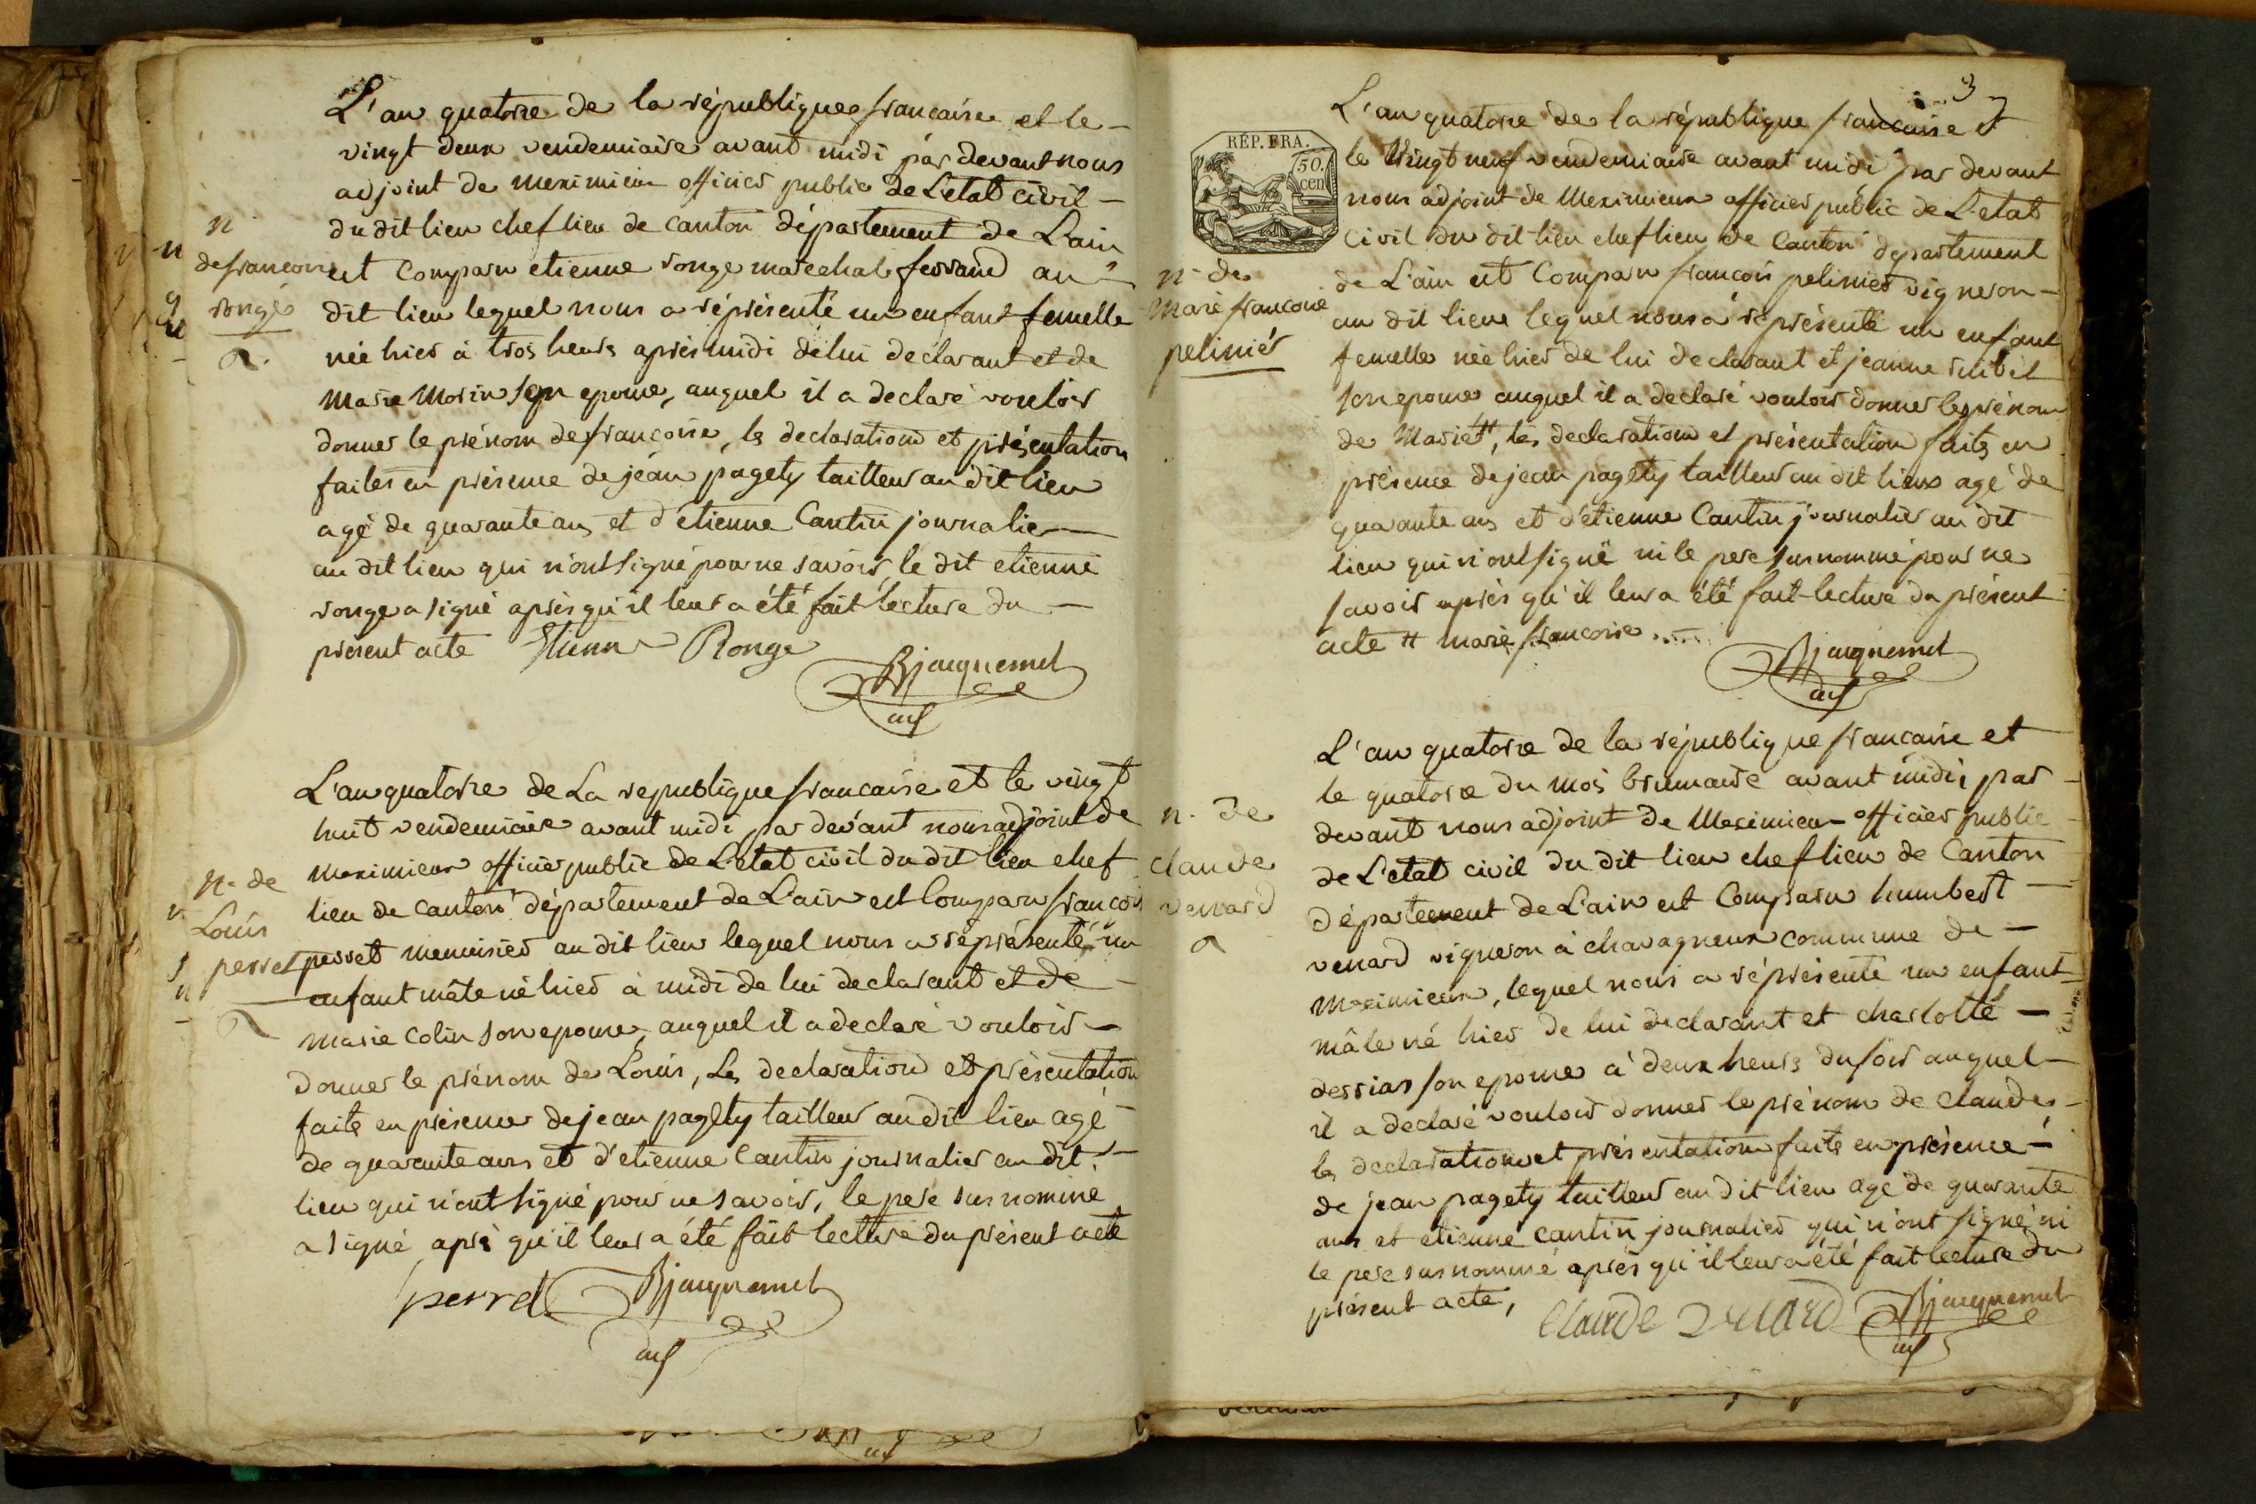 L'an quatorze de la république francaise et le
vingt deux vendemiaire avant midi par devant nous
adjoint de meximieux officier public de L'etat civil
du dit lieu chef lieu de canton département de L'ain
n
de francoise
ronge
est comparu etienne ronge marechal ferrand au
dit lieu lequel nous a réprésenté un enfant femelle
née hier à trois heurs après midi de lui declarant et de
marie morin son epouse, auquel il a declaré vouloir
donner le prénom de francoise, les declaration et présentation
faites en présence de jean pagety tailleur au dit lieu
agé de quarante ans et d'étienne Cantin journalier
au dit lieu qui n'ont signé pour ne savoir, le dit etienne
ronge a signé après qu'il leur a été fait lecture du
présent acte Etienne Ronge
Bjacquemet
adj
L'an quatorze de La republique francaise et le vingt
huit vendemiaire avant midi par devant nous adjoint de
meximieux officier public de L'etat civil du dit lieu chef
n. de
Louis
perret
lieu de canton département de L'ain est comparu francois
perret menuisier au dit lieu lequel nous a réprésenté un
enfant mâle né hier à midi de lui declarant et de
marie colin son epouse, auquel il a declaré vouloir
donner le prénom de Louis, Les declaration et présentation
faite en présence de jean pagety tailleur au dit lieu agé
de quarante ans et d'etienne cantin journalier au dit
lieu qui n'ont signé pour ne savoir, le pere sus nommé
a signé après qu'il leur a été fait lecture du présent acte
perret Bjacquemet
adj
3
RÉP. FRA.
50.
cen
L'an quatorze de la république francaise et
le vingt neuf vendemiaire avant midi par devant
nous adjoint de Meximieux officier public de L'etat
civil du dit lieu chef lieu de Canton departement
n. de
Marie francoise
pelinier
de L'ain est Comparu francois pelinier vigneron
au dit lieu lequel nous a réprésenté un enfant
femelle née hier de lui declarant et jeanne
son epouse auquel il a declaré vouloir donner le prénom
de Marie #, les declaration et présentation faites en
présence de jean pagety tailleur au dit lieu agé de
quarante ans et d'étienne Cantin journalier au dit
lieu qui n'ont signé ni le pere susnommé pour ne
savoir après qu'il leur a été fait lecture du présent
acte # marie francoise
Bjacquemet
adj
L'an quatorze de la république francaise et
le quatorze du mois brumaire avant midi, par
devant nous adjoint de Meximieux officier public
n. de
claude
venard
de L'etat civil du dit lieu chef lieu de Canton
département de L'ain est Comparu humbert
venard vigneron à chavagneux commune de
meximieux, lequel nous a réprésenté un enfant
mâle né hier de lui declarant et charlotte
derrias son epouse à deux heurs du soir auquel
il a declaré vouloir donner le prénom de claude
les declaration et présentation faite en présence
de jean pagety tailleur au dit lieu agé de quarante
ans et etienne cantin journalier qui n'ont signé, ni
le pere sus nommé après qu'il leur a été fait lecture du
présent acte,
Claude venard Bjacquemet
adj